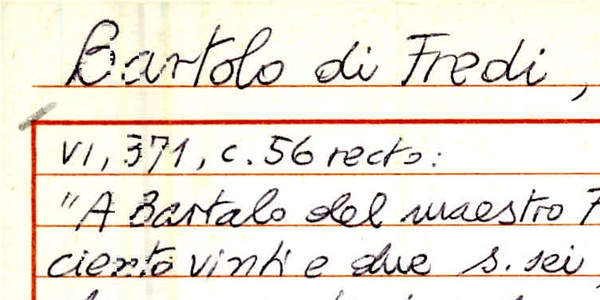 Bartolo di Fredi,
VI, 371, c. 56 recto:
"A Bartalo del maestro
ciento vinti e due s. sei